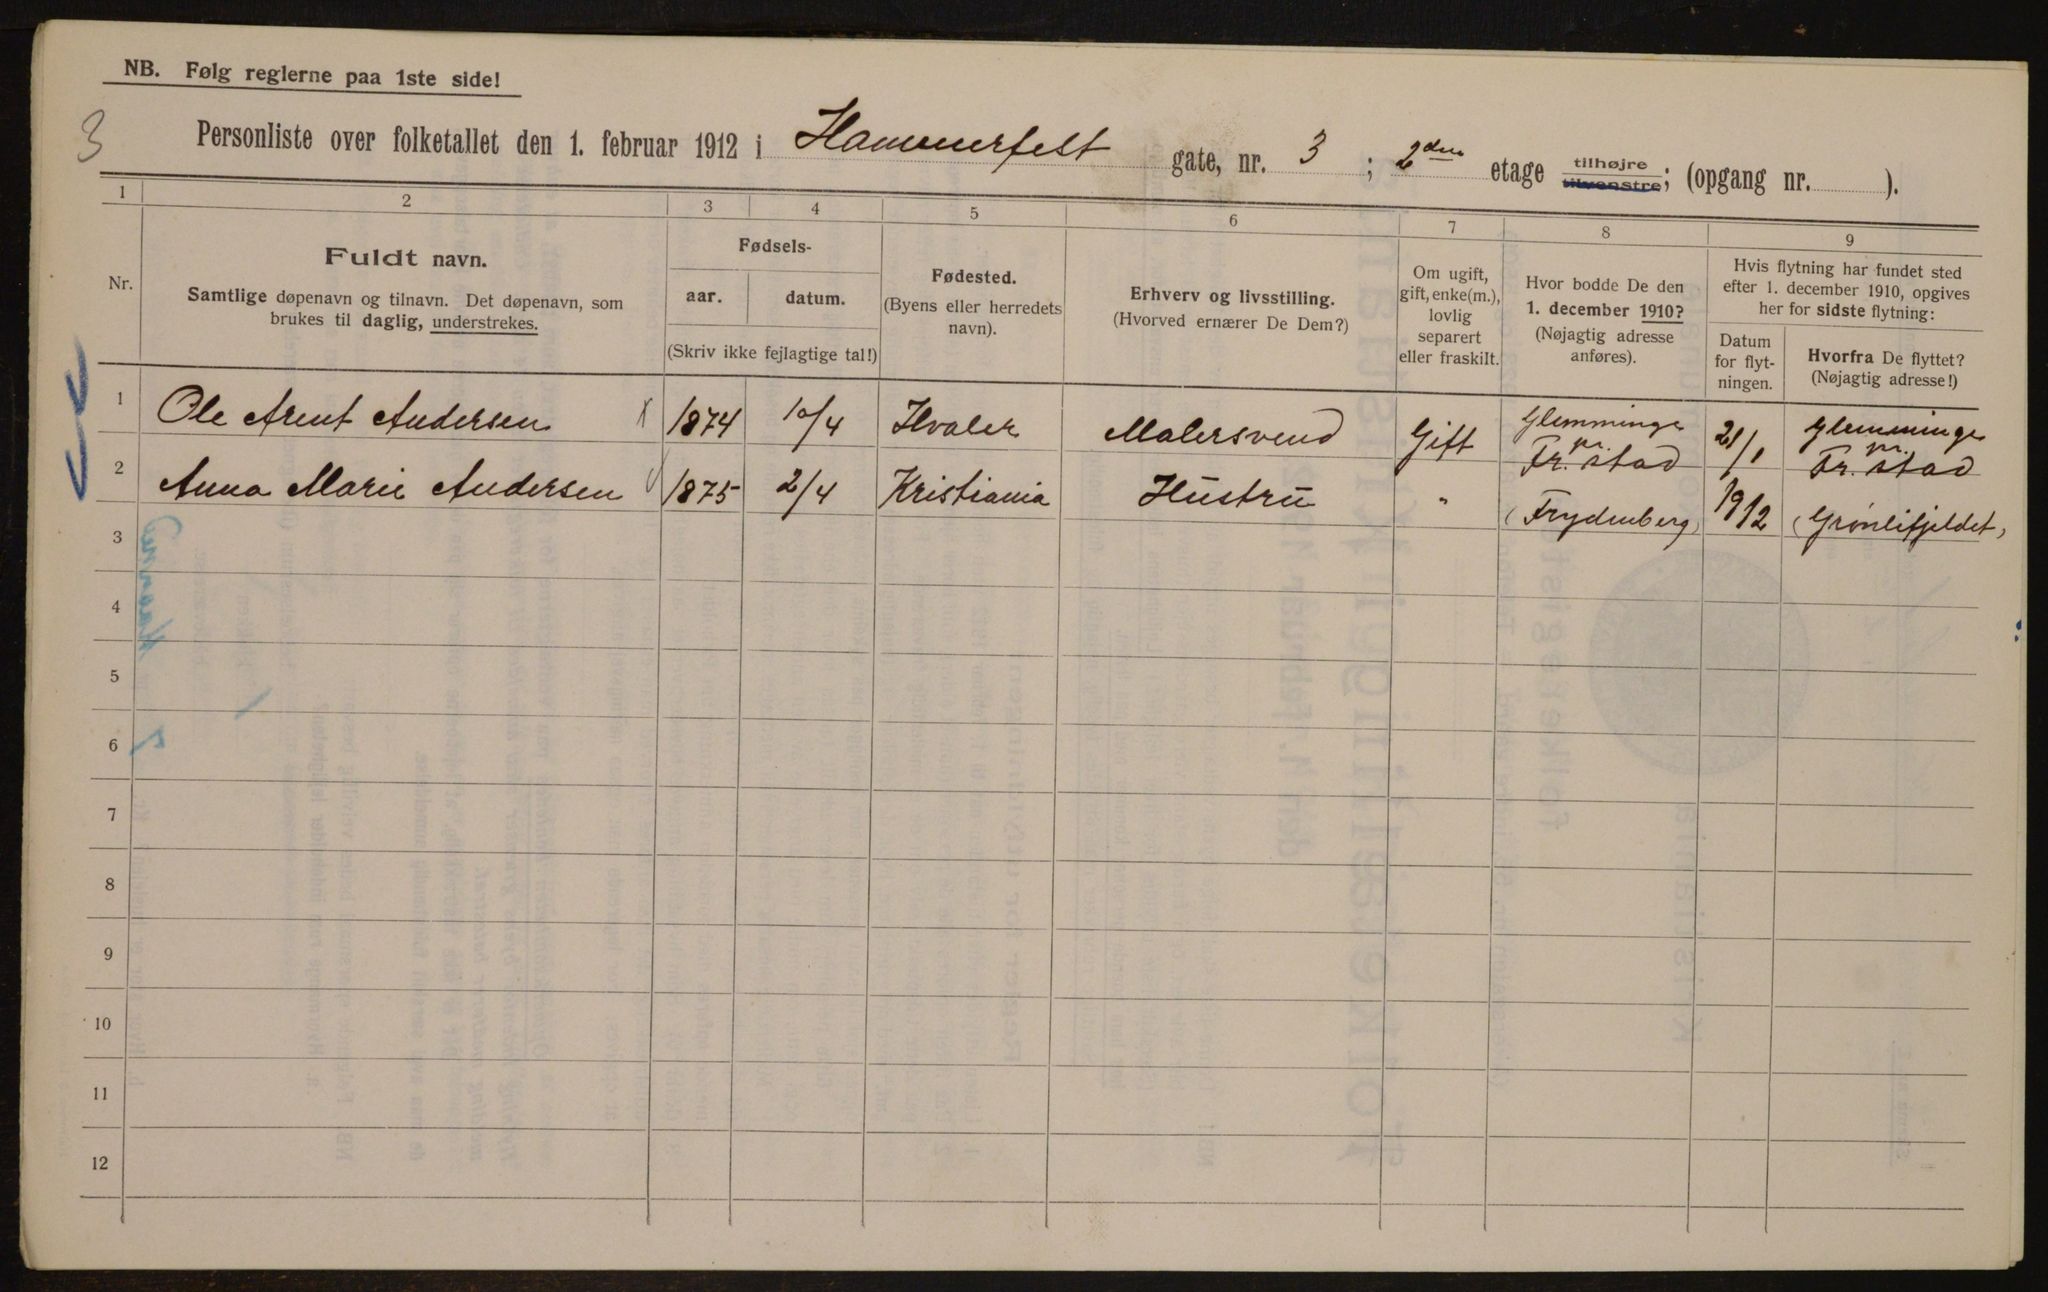 NB. Følg reglerne paa 1ste side!
3
Personliste over folketallet den 1. februar 1912 i Hammerfest gate, nr. 3 ; 2den etage tilhøjre tilvenstre; (opgang nr. ).
1 2 3 4 5 6 7 8 9
Nr.
Fuldt navn.
Samtlige døpenavn og tilnavn. Det døpenavn, som
brukes til daglig, understrekes.
Fødsels-
aar. datum.
(Skriv ikke fejlagtige tal!)
Fødested.
(Byens eller herredets
navn).
Erhverv og livsstilling.
(Hvorved ernærer De Dem?)
Om ugift,
gift, enke(m.),
lovlig
separert
eller fraskilt.
Hvor bodde De den
1. december 1910?
(Nøjagtig adresse
anføres).
Hvis flytning har fundet sted
efter 1. december 1910, opgives
her for sidste flytning:
Datum
for flyt-
ningen.
Hvorfra De flyttet?
(Nøjagtig adresse!)
1 Ole Arent Andersen 1874 10/4 Hvaler Malersvend Gift Glemminge pr. Fr.stad 21/1 Glemminge pr. Fr.stad
2 Anna Marie Andersen 1875 2/4 Kristiania Hustru " (Frydenberg) 1912 (Grønlifjeldet)
3
4
5
6
7
8
9
10
11
12